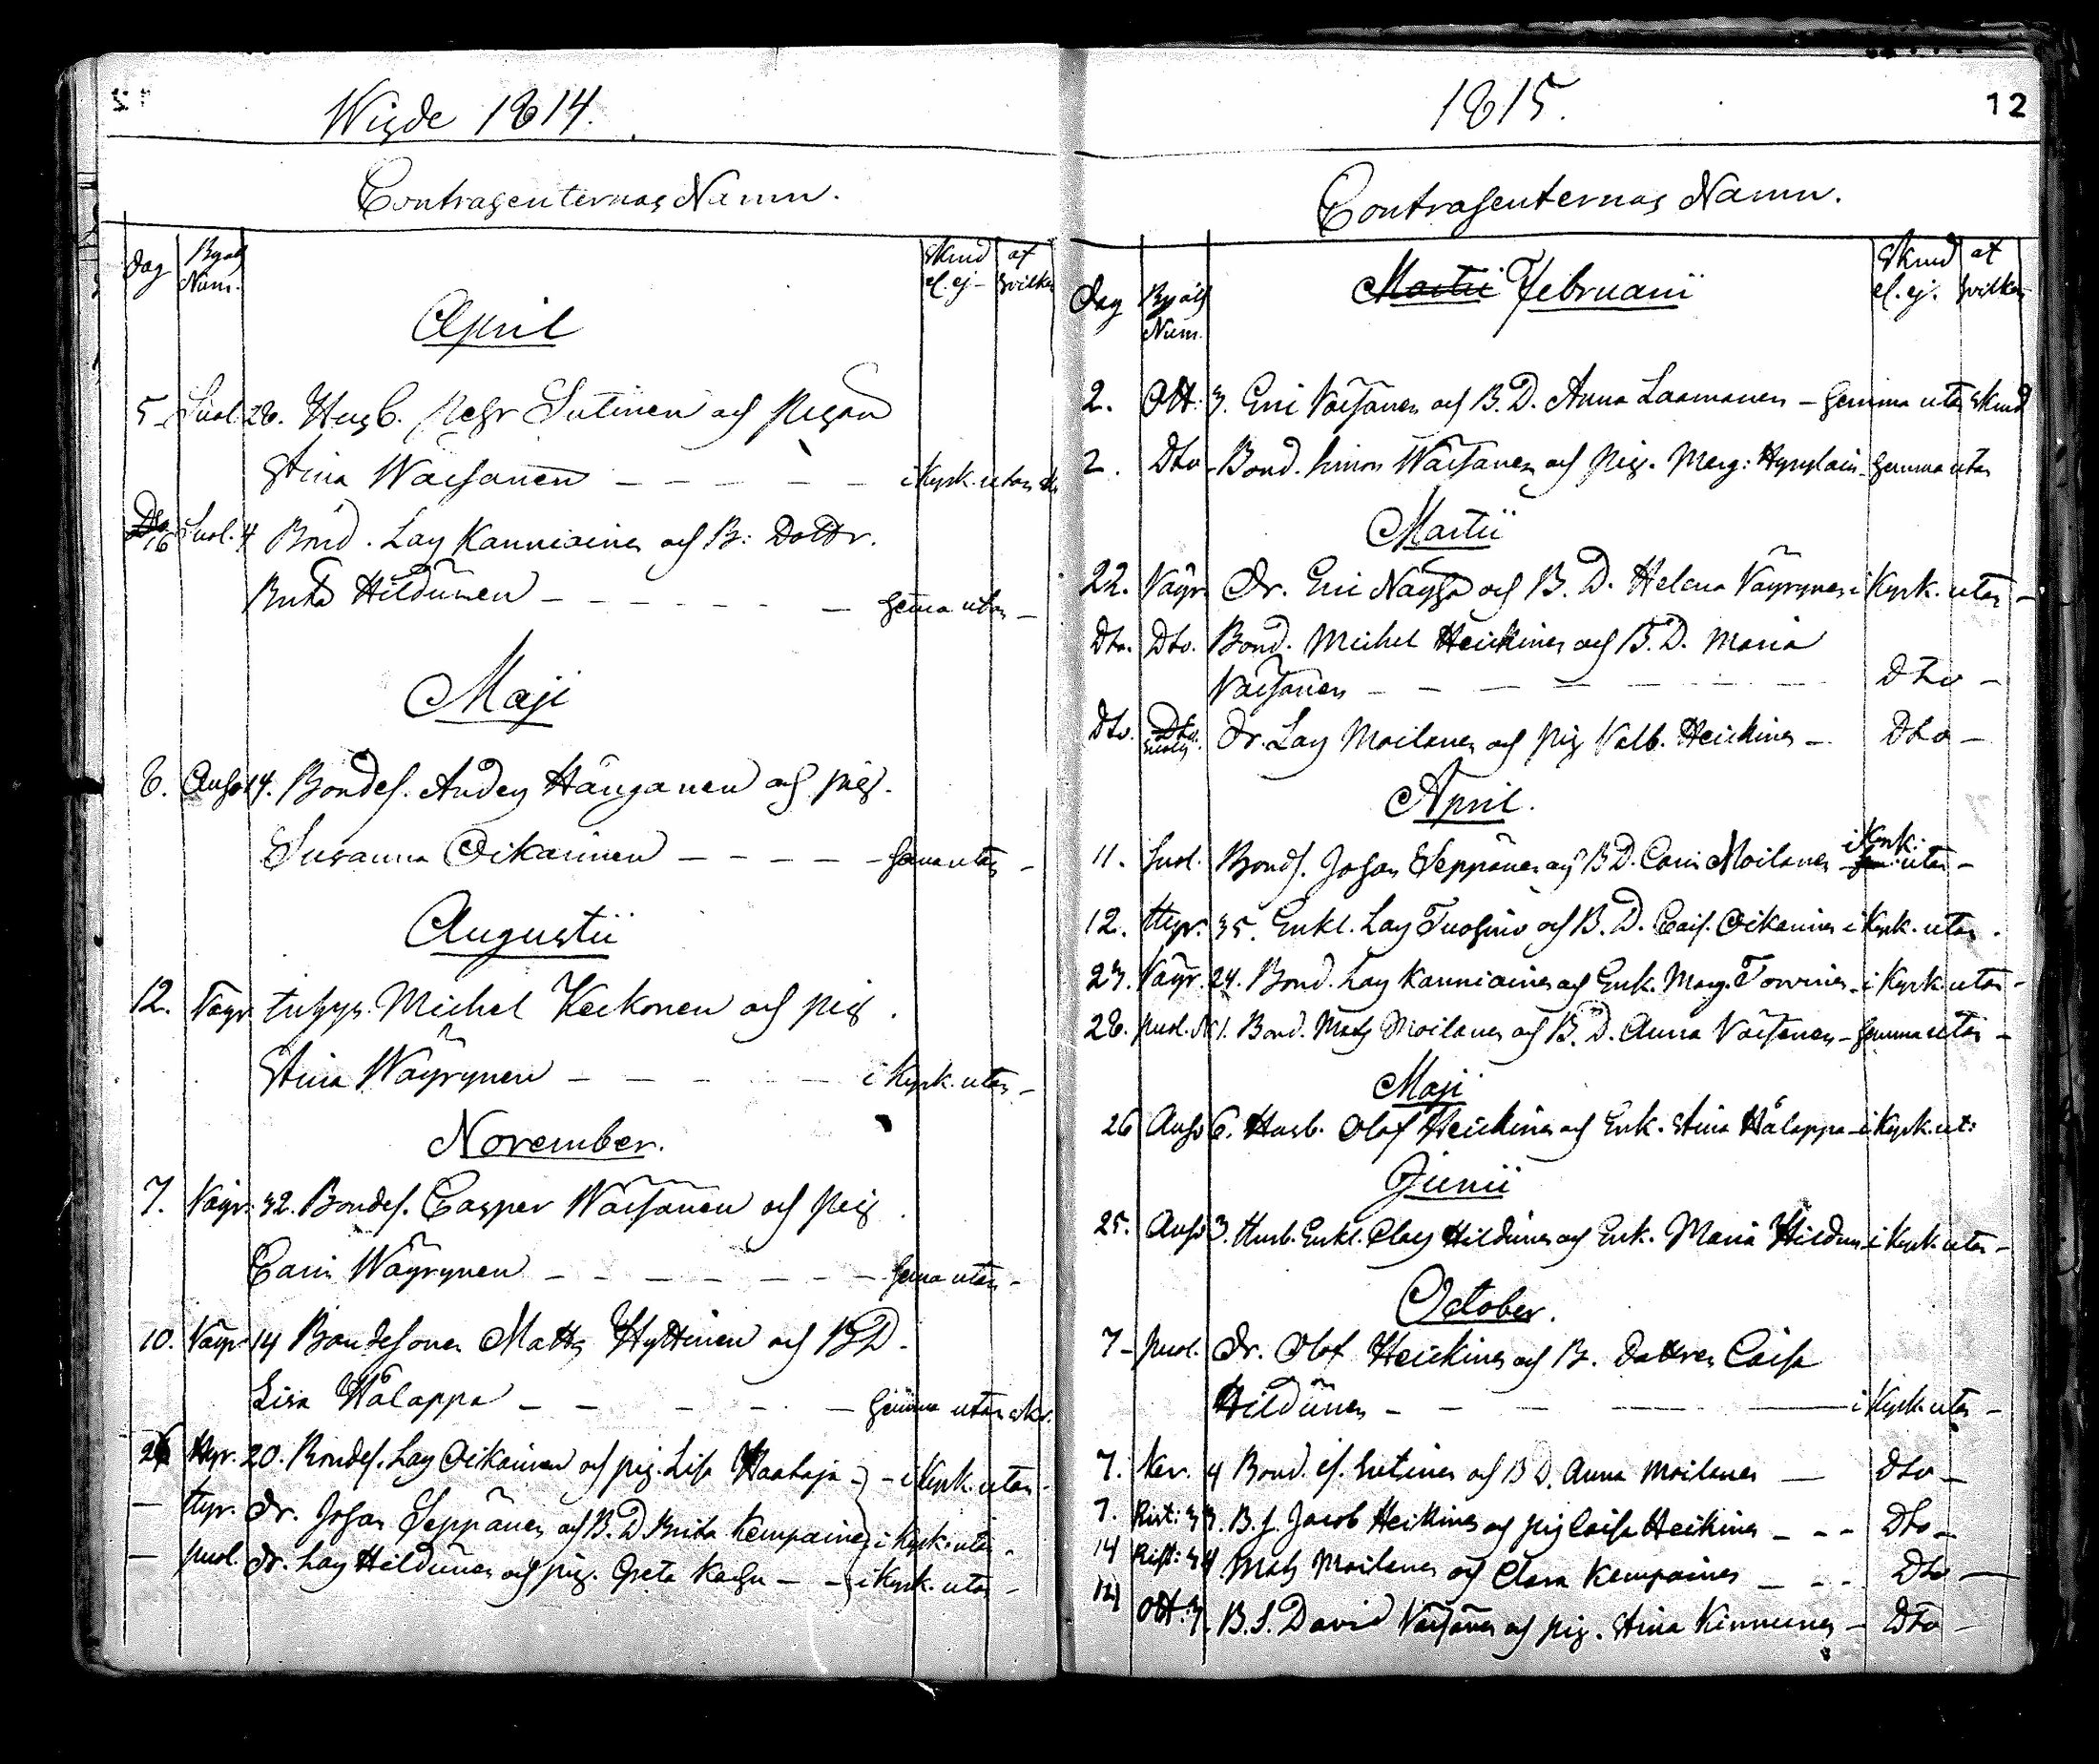 Wigde 1814.
Contragenternas Namn.
Dag Byals Num. Skrud el. ej- af hvilken
April
5. Suol. 28. Husb. Pehr Sutinen och Pigan
Stina Waisänen - - - - - i Kyrk. utan
16 Suol. 4 Bond. Lars Kanniainen och B: Dottr.
Brita Hildünen - - - - - hemma utan -
Maji
6. Anho 14. Bondes. Anders Hänganen och pig.
Susanna Oikarinen - - - - - hemma utan -
Augustii
12. Väyr. Michel Keckonen och pig.
Stina Wäyrynen - - - - - i Kyrk. utan -
November.
7. Väyr. 32. Bondes. Casper Waisänen och pig.
Carin Wäyrynen - - - - - hemma utan -
10. Väyr. 14 Bondesonen Matts Hyttinen och BD.
Lisa Hålappa - - - - - hemma utan skr.
26 Hyr. 20. Bondes. Lars Oikarinen och pig. Lisa Haataja - - i Kyrk. utan -
— Hyr. Dr. Johan Seppänen och B.D. Brita Kempainen i Kyrk. utan -
— puol. Dr. Lars Hildünen och pig. Greta Kaehu - - i Kyrk. utan -
1815.
12
Contragenternas Namn.
Dag Byals Num. Skrud el. ej. af hvilken
Martii Februarii
2. Ott: 3. Eric Vaisänen och B.D. Anna Laamanen - hemma utan skrud
2. Dto - Bond. Simon Wäisänen och Pig. Marg: hemma utan
Martii
22. Väyr. Dr. Eric och B.D. Helena Väyrynen i Kyrk. utan -
Dto. Dto. Bond. Michel Heickinen och B.D. Maria
Vaisänen - - - - - - Dto -
Dto. Dto. Dr. Lars Moilanen och pig Valb. Heickinen - Dto -
April.
11. Suol. Bonds. Johan Seppänen och B.D. Carin Moilanen i Kyrk. utan -
12. Hyr. 35. Enkl. Lars Tuohino och B.D. Cais. Oikarinen i Kyrk. utan.
23. Väyr. 24. Bond. Lars Kanniainen och Enk. Marg. Torvinen - i Kyrk utan -
28. puol. N 1. Bond. Mats Moilanen och B.D. Anna Väisänen - hemma utan -
Maji
26 Anho 6. Husb. Olof Heickinen och Enk. Stina Hålappa - i Kyrk. ut:
Junii
25. Anho 3. Husb. Enkl. Claes Hildünen och Enk. Maria Hildün - i Kyrk utan -
October.
7 - puol. Dr. Olof Heickinen och B. Dottren Caisa
Hildünen - - - - - i Kyrk. utan -
7. Ker. 4 Bond. Sutinen och B.D. Anna Moilanen — Dto -
7. Rist: 33. B.s. Jacob Heikinen och pig Caisa Heikinen - - - Dto -
14 Rist: 34 Mats Moilanen och Clara Kempainen - - - Dto —
14 Ott: 3. B.S. David Vaisänen och pig. Stina Kinnunen - Dto -